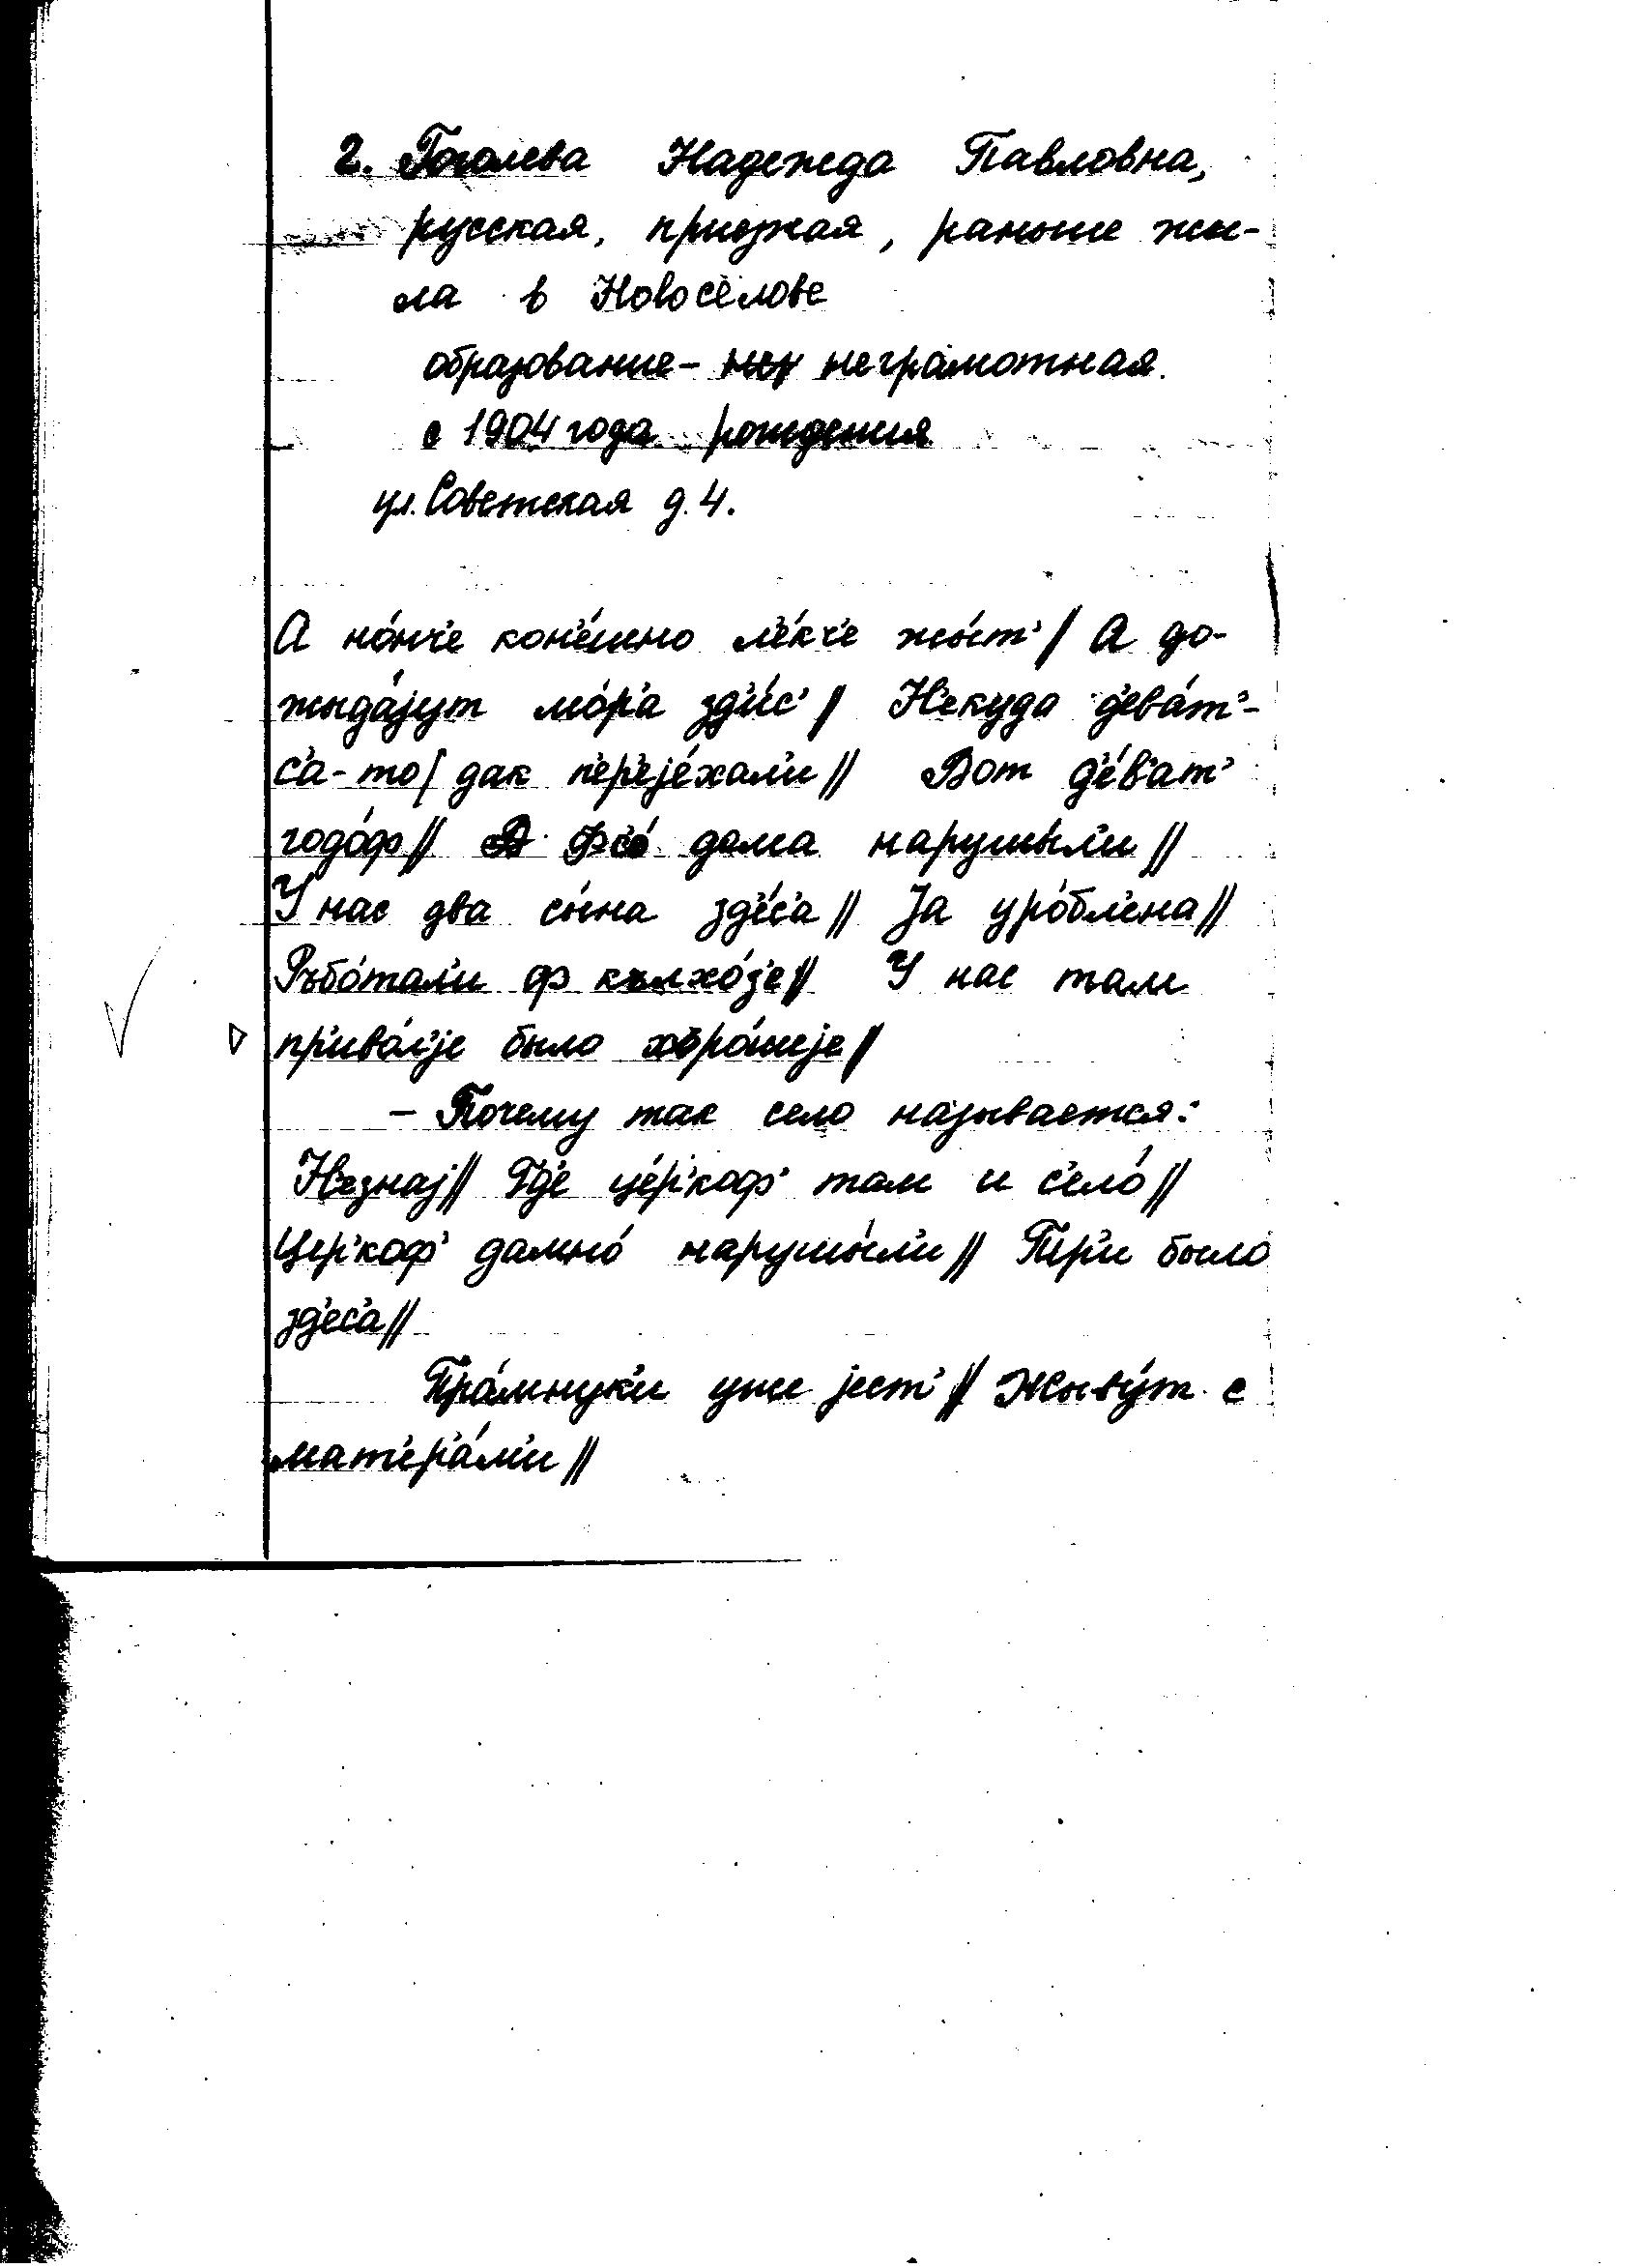 2. Гоголева Надежда Павловна,
русская, приезжая, раньше жи-
ла в Новосёлове
образование – неграмотная.
с 1904 года рождения
ул. Советская д. 4.
А но́нч'е кон'е́шно л'е́кч'е жы́т' / А до-
жыда́јут мо́р'а зд'и́с' // Н'екуда д'ева́т'-
с'а-то / дак п'ер'еје́хал'и // Вот д'е́в'ат'
годо́ф // Фс'о́ дама нарушы́л'и //
У нас два сы́на зд'е́с'а // Ја уро́бл'ена //
Ръбо́тал'и ф кълхо́з'е // У нас там
пр'иво́л'је было хъро́шеје //
– Почему так село называется:
Н'езнај // Гд'е це́р'коф' там и с'ело́ //
Цер'коф' дамно́ нарушы́л'и // Тр'и было
зд'ес'а //
Пра́мнук'и уже јест' // Жыву́т с
мат'ер'а́м'и //